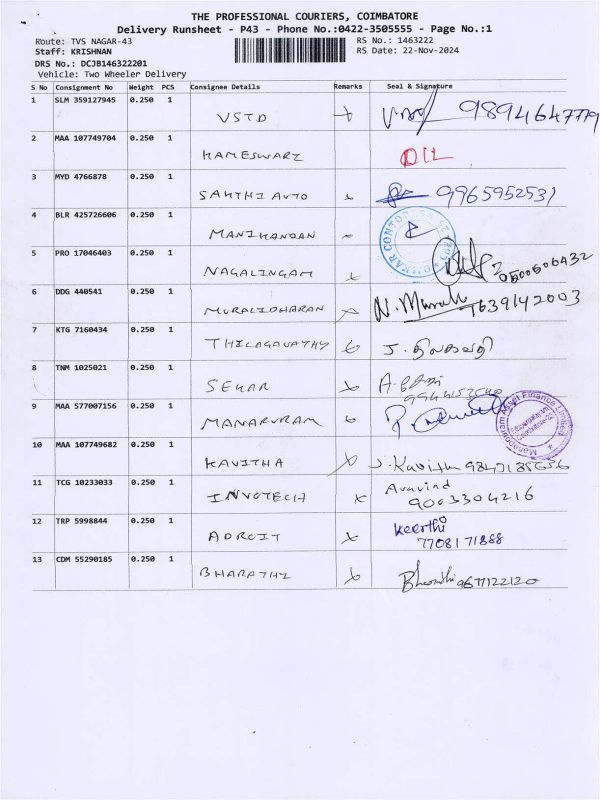 THE PROFESSIONAL COURIERS, COIMBATORE
Delivery Runsheet - P43 - Phone No.:0422-3505555 - Page No.:1
Route: TVS NAGAR-43 RS No.: 1463222
Staff: KRISHNAN RS Date: 22-Nov-2024
DRS No.: DCJB146322201
Vehicle: Two Wheeler Delivery
S No Consignment No Weight PCS Consignee Details Remarks Seal & Signature
1 SLM 359127945 0.250 1 VSTD 9894647779
2 MAA 107749704 0.250 1 KAMESWARI
3 MYD 4766878 0.250 1 SAKTHI AUTO 9965952531
4 BLR 425726606 0.250 1 MANIKANDAN
5 PRO 17046403 0.250 1 NAGALINGAM
6 DDG 440541 0.250 1 MURALIDHARAN N. Murali 7639142003
7 KTG 7160434 0.250 1 THILAGAVATHY J. திலகவதி
8 TNM 1025021 0.250 1 SEKAR
9 MAA 577007156 0.250 1 MANAPURAM
Manappuram Asset Finance Limited
10 MAA 107749682 0.250 1 KAVITHA J. Kavitha
11 TCG 10233033 0.250 1 INVOTECH Aravind
9003304216
12 TRP 5998844 0.250 1 ADROIT Keerthi
7708171888
13 CDM 55290185 0.250 1 BHARATHI Bharathi 9677122120